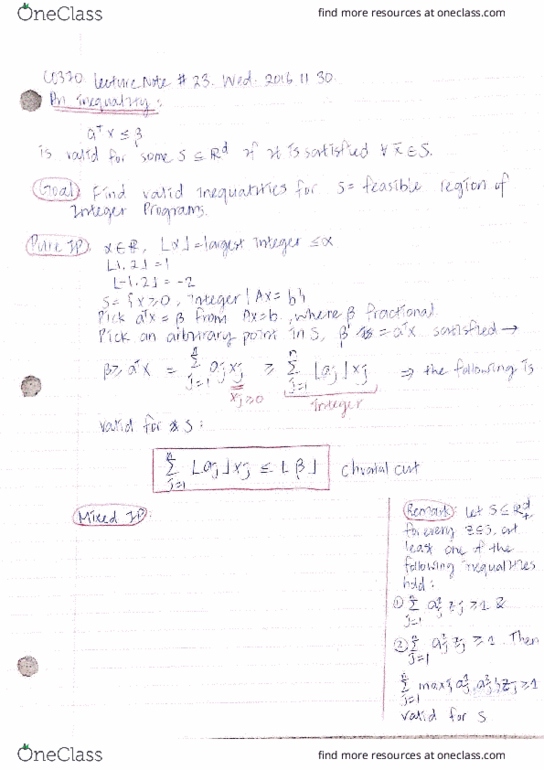 OneClass find more resources at oneclass.com
CO370 Lecture Note # 23. Wed. 2016 11 30.
An inequality:
aᵀx ≤ β
is valid for some S ⊆ ℝᵈ if it is satisfied ∀ x̄ ∈ S.
Goal: Find valid inequalities for S = feasible region of
Integer Programs.
Pure IP: x ∈ ℝ, ⌊x⌋ = largest integer ≤ x
⌊1.2⌋ = 1
⌊-1.2⌋ = -2
S = {x ≥ 0, integer | Ax = b}
Pick aᵀx = β from Ax = b, where β fractional.
Pick an arbitrary point in S, β = aᵀx satisfied →
β ≥ aᵀx = Σⁿⱼ₌₁ aⱼxⱼ ≥ Σⁿⱼ₌₁ ⌊aⱼ⌋xⱼ ⇒ the following is
xⱼ ≥ 0 integer
valid for S:
Σⁿⱼ₌₁ ⌊aⱼ⌋xⱼ ≤ ⌊β⌋ Chvatal cut
Mixed IP:
Remark: Let S ⊆ ℝᵈ₊
for every z ∈ S, at
least one of the
following inequalities
hold:
① Σⁿⱼ₌₁ a¹ⱼzⱼ ≥ 1 &
② Σⁿⱼ₌₁ a²ⱼzⱼ ≥ 1. Then
Σⁿⱼ₌₁ max{a¹ⱼ, a²ⱼ}zⱼ ≥ 1
valid for S
OneClass find more resources at oneclass.com